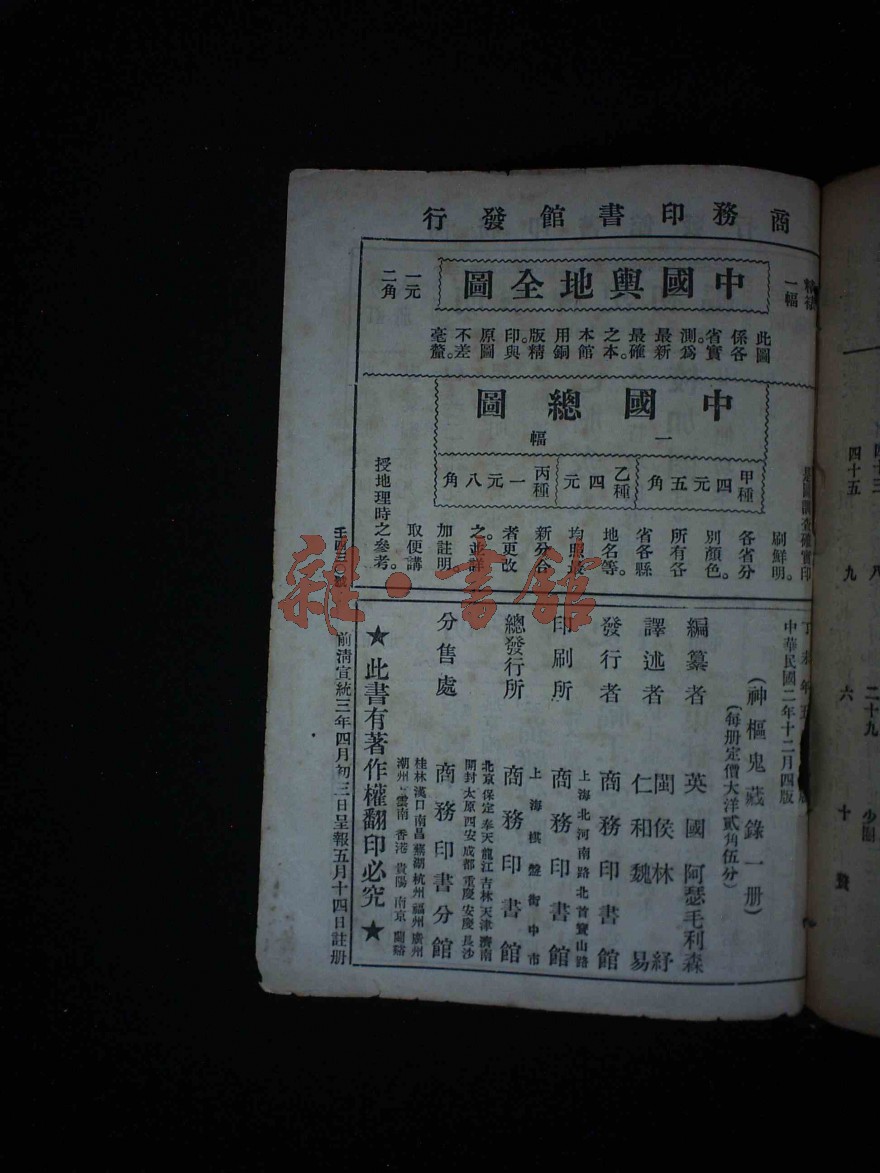 商務印書館發行
中國輿地全圖
一幅
一元
二角
此圖
係各
省實
測。為
最新
最確
之本。
本館
用銅
版精
印與
原圖
不差
毫釐。
中國總圖
一幅
甲種四元五角
乙種四元
丙種一元八角
是圖調查確實印
刷鮮明。
各省分
別顏色。
所有各
省各縣
地名等。
均照最
新分合
者更改
之。並詳
加註明。
取便講
授地理時之參考。
中華民國二年十二月四版
(神樞鬼藏錄一册)
(每册定價大洋貳角伍分)
編纂者 英國阿瑟毛利森
譯述者 閩侯林紓
仁和魏易
發行者 商務印書館
上海北河南路北首寶山路
印刷所 商務印書館
上海棋盤街中市
總發行所 商務印書館
北京保定奉天龍江吉林天津濟南
開封太原西安成都重慶安慶長沙
分售處 商務印書分館
桂林漢口南昌蕪湖杭州福州廣州
潮州雲南香港貴陽南京蘭谿
★此書有著作權翻印必究★
前清宣統三年四月初三日呈報五月十四日註册
雜·書館
四十五 九 六 十
二十九